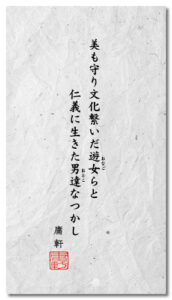 美も守り文化繋いだ遊女らと
仁義に生きた男達なつかし
庸軒